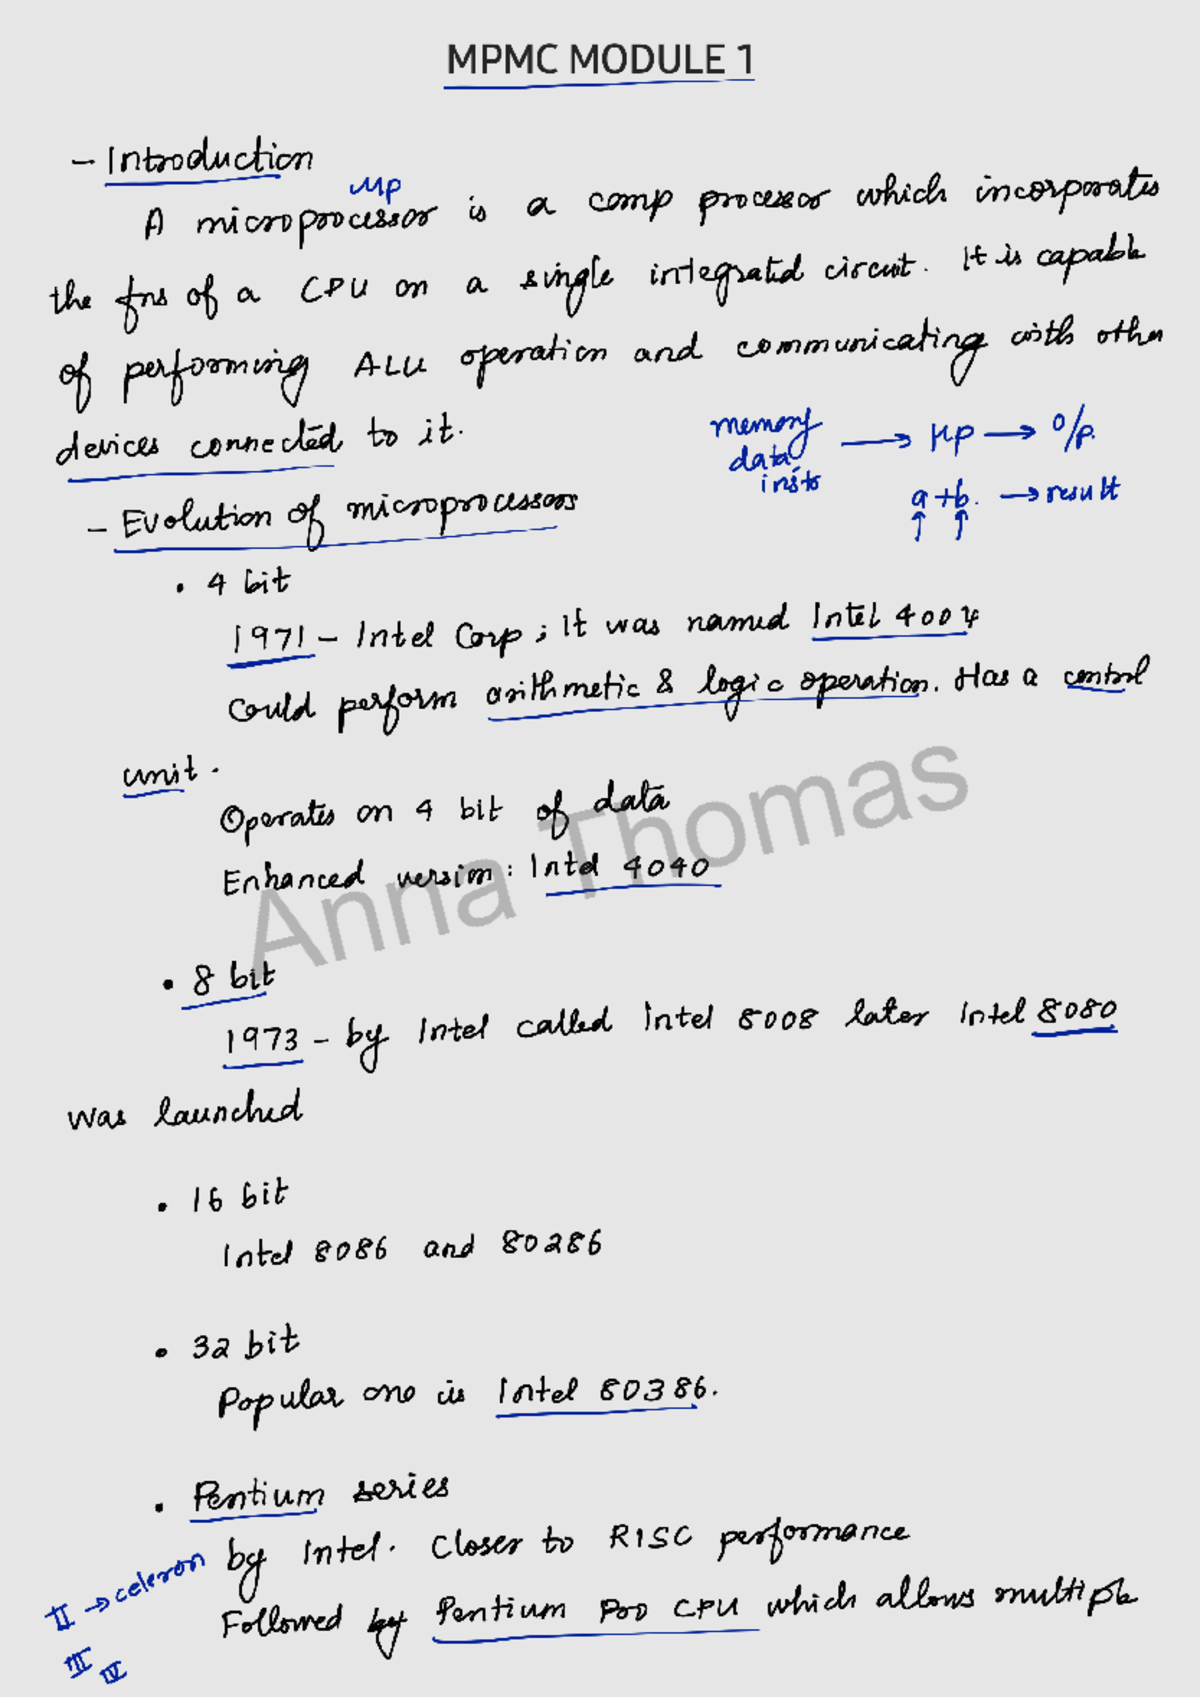 MPMC MODULE 1
- Introduction
μp
A microprocessor is a comp processor which incorporates
the fns of a CPU on a single integrated circuit. It is capable
of performing ALU operation and communicating with other
devices connected to it.
memory data instr → μp → o/p.
a+b. → result
- Evolution of microprocessors
• 4 bit
1971 - Intel Corp; It was named Intel 4004
Could perform arithmetic & logic operation. Has a control
unit.
Operates on 4 bit of data
Enhanced version: Intel 4040
Anna Thomas
• 8 bit
1973 - by Intel called Intel 8008 later Intel 8080
was launched
• 16 bit
Intel 8086 and 80286
• 32 bit
Popular one is Intel 80386.
• Pentium series
by Intel. Closer to RISC performance
II → celeron
Followed by Pentium Pro CPU which allows multiple
III IV